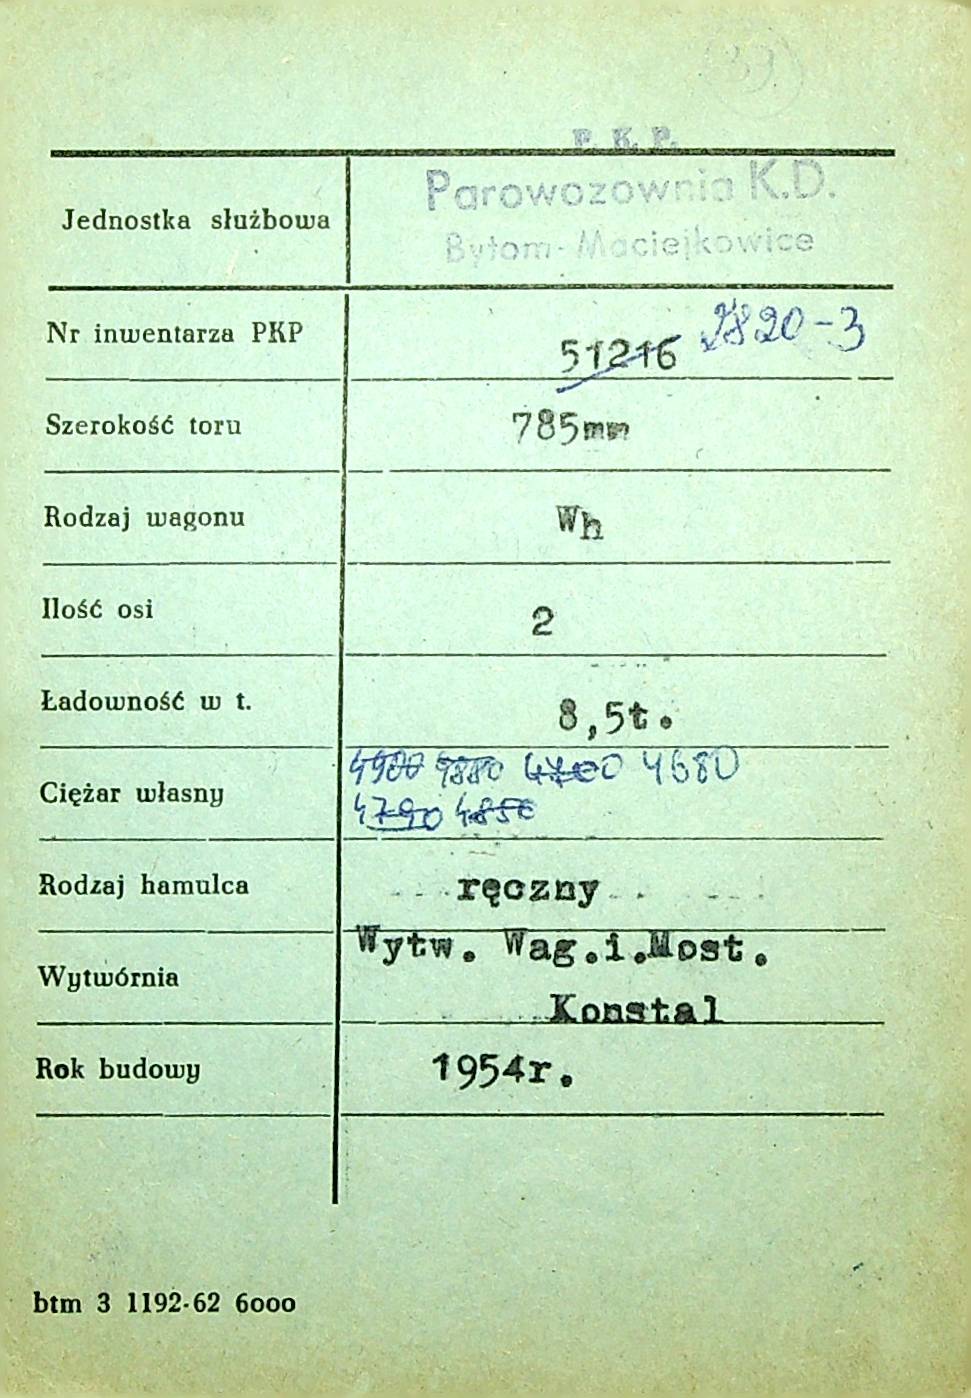 39
P. K. P.
Parowozownia K.D.
Bytom-Maciejkowice
Jednostka służbowa
Nr inwentarza PKP 51216 2820-3
Szerokość toru 785mm
Rodzaj wagonu Wh
Ilość osi 2
Ładowność w t. 8,5t.
4900 4880 4700 4680
Ciężar własny
4790 4850
Rodzaj hamulca ręczny
Wytw. Wag.i.Most.
Wytwórnia
Konstal
Rok budowy 1954r.
btm 3 1192-62 6000